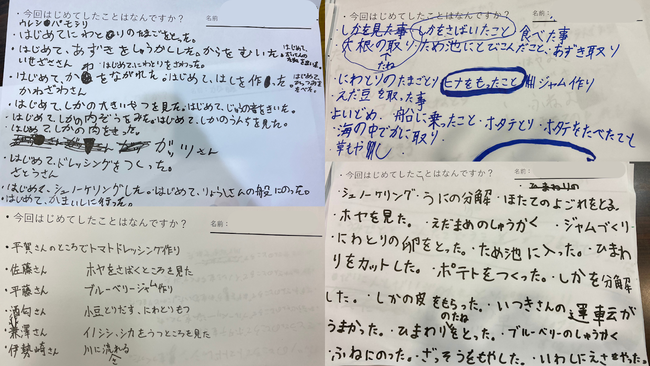 ・今回はじめてしたことはなんですか？ 名前
ウレシパモシリ
・はじめてにわとりのたまごをとった。
・はじめて、あずきをしゅうかくした。からをむいた。
いせざきさん ・はじめてにわとりをさわった。
・はじめて、かわをながれた。・はじめて、はしを作った。
かねざわさん
・はじめてしかの大きいやつを見た。・はじめて、じゅうの音をきいた。
・はじめてしかの内ぞうをみた。・はじめて、しかのうんちを見た。
・はじめてしかの肉をきった。
がッツさん
・はじめてドレッシングをつくった。
さとうさん
・はじめて、シュノーケリングした。・はじめて、りょうしさんの船にのった。
・はじめて、かまいしに行った。
・今回はじめてしたことはなんですか？ 名前：
・平賀さんのところでトマトドレッシング作り
・佐藤さん ホヤをさばくところを見た
・平藤さん ブルーベリージャム作り
小豆とりだす、にわとりもつ
・兼澤さん イノシシ、シカをうつところを見た
・伊勢崎さん 川に流れる
・今回はじめてしたことはなんですか？ 名前：
しかを見た事 しかをさばいたこと 食べた事
大根の取り ため池にとびこんだこと・あずき取り
たね
にわとりのたまごとり ヒナをもったこと ジャム作り
えだ豆を取った事
よいどめ、船に乗ったこと・ホタテとり・ホタテをたべたても
・海の中でかに取り
・今回はじめてしたことはなんですか？ 名前：
・シュノーケリング・うにの分解・ほたてのよごれをとる
・ホヤを見た。・えだまめのしゅうかく ・ジャムづくり・
にわとりの卵をとった。・ため池に入った。・ひまわ
りをカットした。・ポテトをつくった。・しかを分解
した。・しかの皮をもらった。・いつきさんの運転が
うまかった。・ひまわりのたねをとった。・ブルーベリーのしゅうかく
・ふねにのった。・ざっそうをもやした。・いわしにえさをやった。